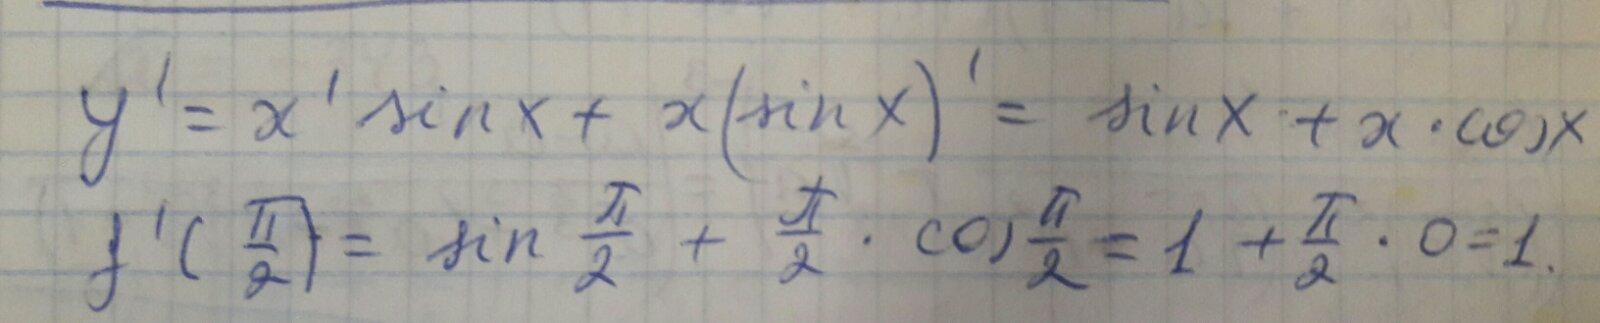 y' = x' sin x + x(sin x)' = sin x + x · cos x
f'(π/2) = sin π/2 + π/2 · cos π/2 = 1 + π/2 · 0 = 1.